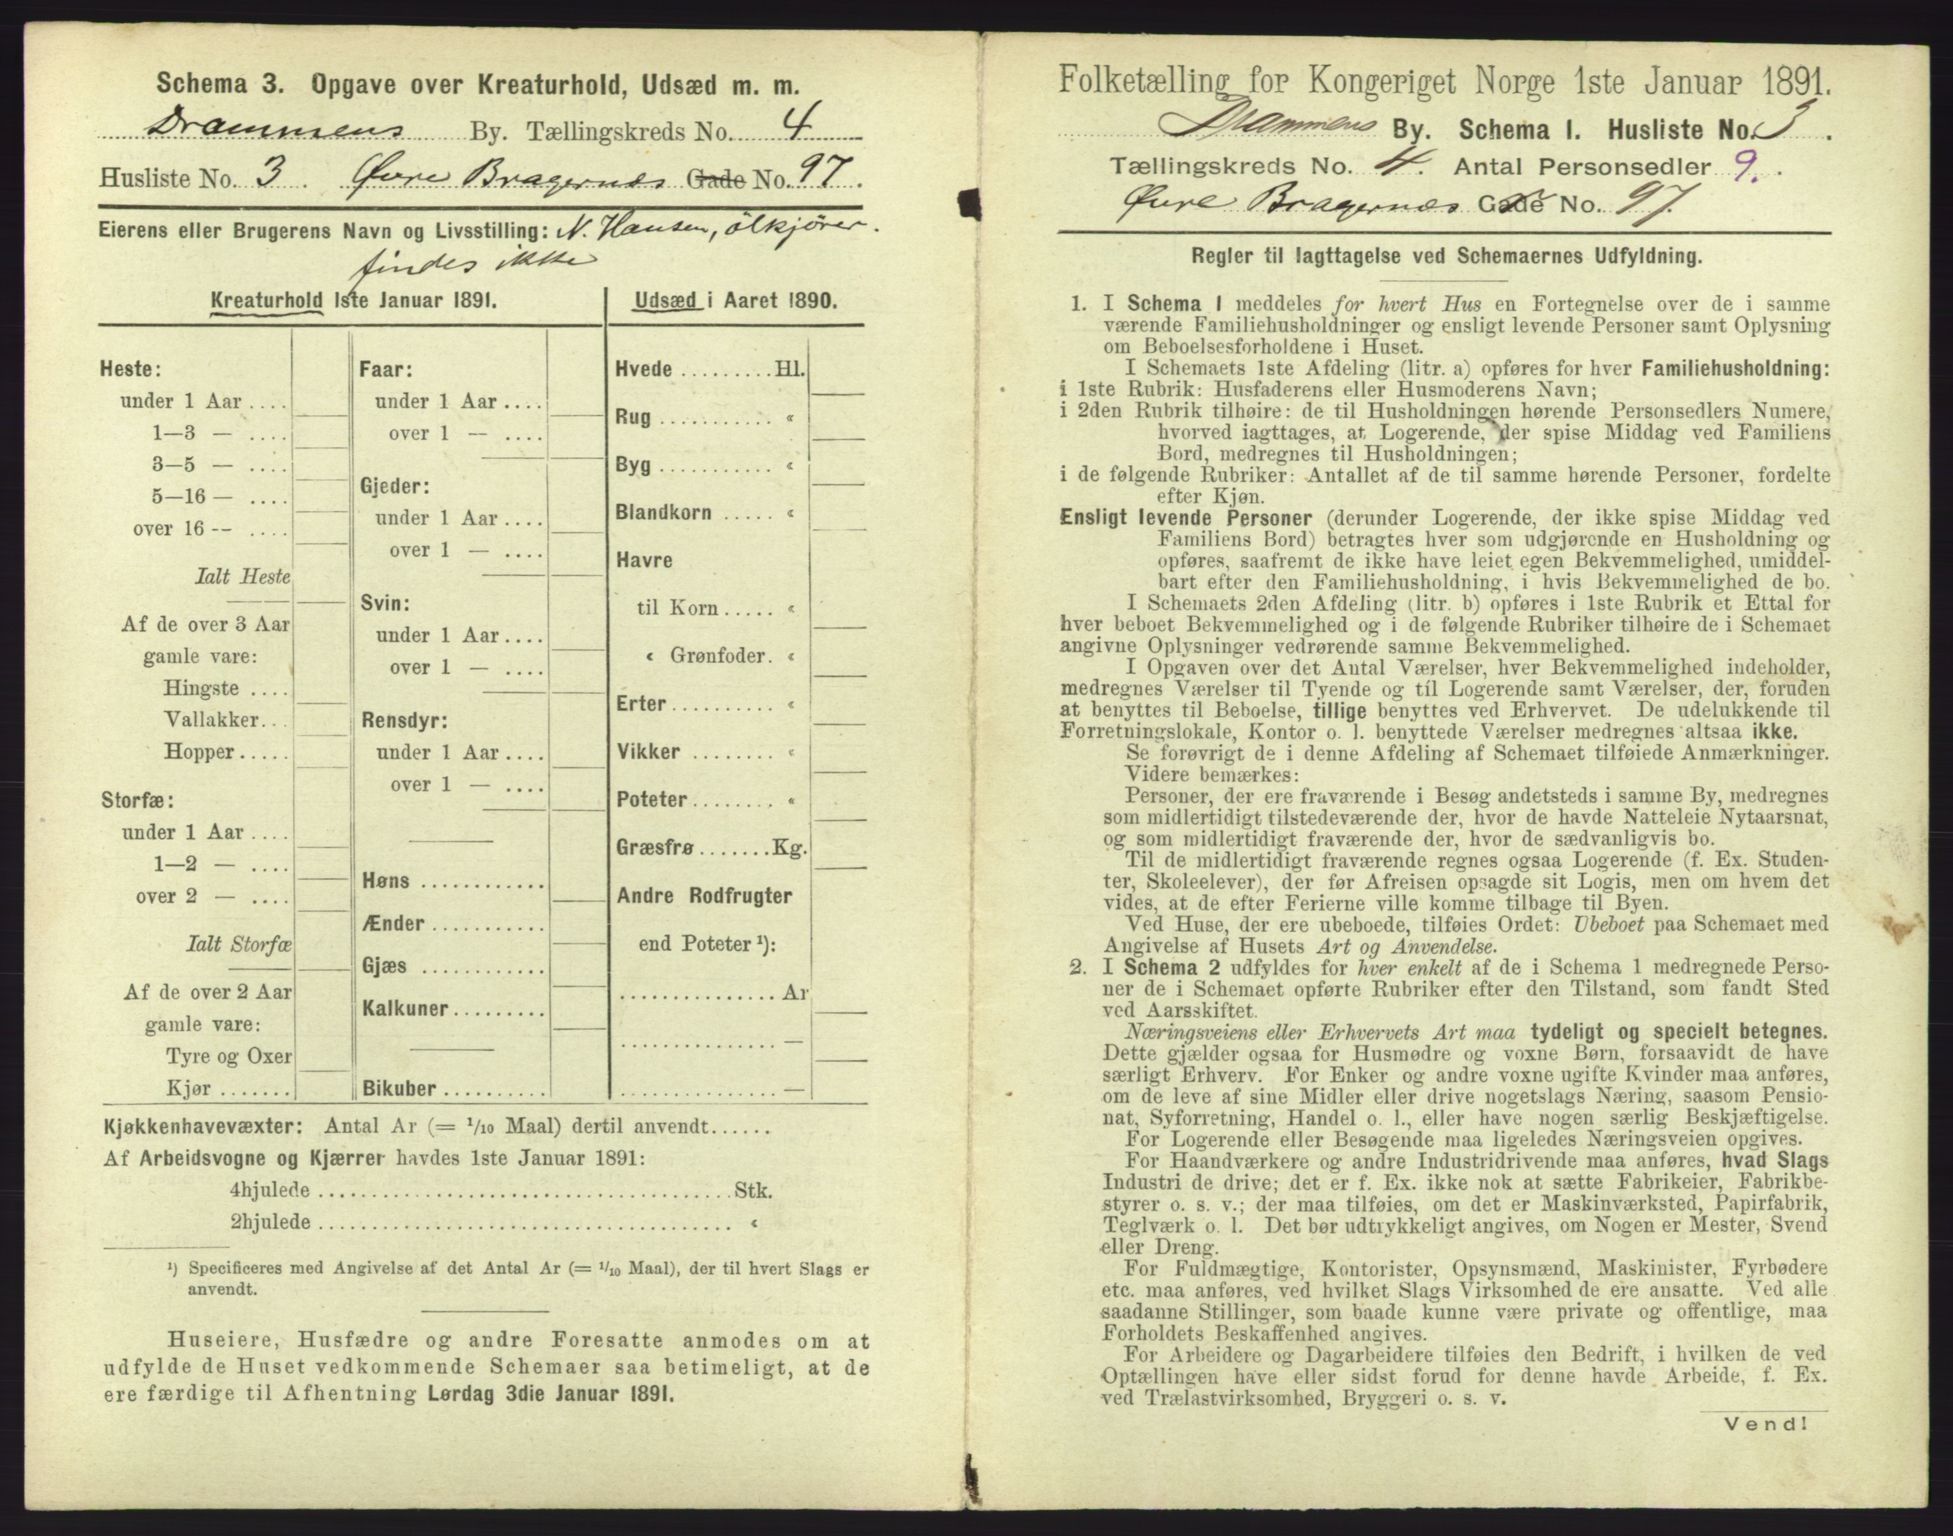 Schema 3. Opgave over Kreaturhold, Udsæd m. m.
Drammens By. Tællingskreds No. 4
Husliste No. 3. Øvre Bragernes Gade No. 97.
Eierens eller Brugerens Navn og Livsstilling: N. Hansen, ölkjörer.
findes ikke
Kreaturhold 1ste Januar 1891.
Heste:
under 1 Aar ....
1—3 — ....
3—5 — ....
5—16 — ....
over 16 -- ....
Ialt Heste
Af de over 3 Aar
gamle vare:
Hingste ....
Vallakker...
Hopper.....
Storfæ:
under 1 Aar ....
1—2 — ....
over 2 — ....
Ialt Storfæ
Af de over 2 Aar
gamle vare:
Tyre og Oxer
Kjør .......
Faar:
under 1 Aar ....
over 1 — ....
Gjeder:
under 1 Aar ....
over 1 — ....
Svin:
under 1 Aar ....
over 1 — ....
Rensdyr:
under 1 Aar ....
over 1 — ....
Høns ............
Ænder ...........
Gjæs ............
Kalkuner.........
Bikuber ..........
Udsæd i Aaret 1890.
Hvede .........Hl.
Rug ........... «
Byg ........... «
Blandkorn ..... «
Havre
til Korn ..... «
« Grønfoder. «
Erter.......... «
Vikker ........ «
Poteter........ «
Græsfrø .......Kg.
Andre Rodfrugter
end Poteter ¹):
............... Ar
............... —
............... —
Kjøkkenhavevæxter: Antal Ar (= 1/10 Maal) dertil anvendt......
Af Arbeidsvogne og Kjærrer havdes 1ste Januar 1891:
4hjulede ........................................ Stk.
2hjulede ........................................ «
¹) Specificeres med Angivelse af det Antal Ar (= 1/10 Maal), der til hvert Slags er
anvendt.
Huseiere, Husfædre og andre Foresatte anmodes om at
udfylde de Huset vedkommende Schemaer saa betimeligt, at de
ere færdige til Afhentning Lørdag 3die Januar 1891.
Folketælling for Kongeriget Norge 1ste Januar 1891.
Drammens By. Schema 1. Husliste No. 3.
Tællingskreds No. 4. Antal Personsedler 9.
Øvre Bragernes Gade No. 97.
Regler til Iagttagelse ved Schemaernes Udfyldning.
1. I Schema 1 meddeles for hvert Hus en Fortegnelse over de i samme
værende Familiehusholdninger og ensligt levende Personer samt Oplysning
om Beboelsesforholdene i Huset.
I Schemaets 1ste Afdeling (litr. a) opføres for hver Familiehusholdning:
i 1ste Rubrik: Husfaderens eller Husmoderens Navn;
i 2den Rubrik tilhøire: de til Husholdningen hørende Personsedlers Numere,
hvorved iagttages, at Logerende, der spise Middag ved Familiens
Bord, medregnes til Husholdningen;
i de følgende Rubriker: Antallet af de til samme hørende Personer, fordelte
efter Kjøn.
Ensligt levende Personer (derunder Logerende, der ikke spise Middag ved
Familiens Bord) betragtes hver som udgjørende en Husholdning og
opføres, saafremt de ikke have leiet egen Bekvemmelighed, umiddel-
bart efter den Familiehusholdning, i hvis Bekvemmelighed de bo.
I Schemaets 2den Afdeling (litr. b) opføres i 1ste Rubrik et Ettal for
hver beboet Bekvemmelighed og i de følgende Rubriker tilhøire de i Schemaet
angivne Oplysninger vedrørende samme Bekvemmelighed.
I Opgaven over det Antal Værelser, hver Bekvemmelighed indeholder,
medregnes Værelser til Tyende og til Logerende samt Værelser, der, foruden
at benyttes til Beboelse, tillige benyttes ved Erhvervet. De udelukkende til
Forretningslokale, Kontor o. l. benyttede Værelser medregnes altsaa ikke.
Se forøvrigt de i denne Afdeling af Schemaet tilføiede Anmærkninger.
Videre bemærkes:
Personer, der ere fraværende i Besøg andetsteds i samme By, medregnes
som midlertidigt tilstedeværende der, hvor de havde Natteleie Nytaarsnat,
og som midlertidigt fraværende der, hvor de sædvanligvis bo.
Til de midlertidigt fraværende regnes ogsaa Logerende (f. Ex. Studen-
ter, Skoleelever), der før Afreisen opsagde sit Logis, men om hvem det
vides, at de efter Ferierne ville komme tilbage til Byen.
Ved Huse, der ere ubeboede, tilføies Ordet: Ubeboet paa Schemaet med
Angivelse af Husets Art og Anvendelse.
2. I Schema 2 udfyldes for hver enkelt af de i Schema 1 medregnede Perso-
ner de i Schemaet opførte Rubriker efter den Tilstand, som fandt Sted
ved Aarsskiftet.
Næringsveiens eller Erhvervets Art maa tydeligt og specielt betegnes.
Dette gjælder ogsaa for Husmødre og voxne Børn, forsaavidt de have
særligt Erhverv. For Enker og andre voxne ugifte Kvinder maa anføres,
om de leve af sine Midler eller drive nogetslags Næring, saasom Pensio-
nat, Syforretning, Handel o. l., eller have nogen særlig Beskjæftigelse.
For Logerende eller Besøgende maa ligeledes Næringsveien opgives.
For Haandværkere og andre Industridrivende maa anføres, hvad Slags
Industri de drive; det er f. Ex. ikke nok at sætte Fabrikeier, Fabrikbe-
styrer o. s. v.; der maa tilføies, om det er Maskinværksted, Papirfabrik,
Teglværk o. l. Det bør udtrykkeligt angives, om Nogen er Mester, Svend
eller Dreng.
For Fuldmægtige, Kontorister, Opsynsmænd, Maskinister, Fyrbødere
etc. maa anføres, ved hvilket Slags Virksomhed de ere ansatte. Ved alle
saadanne Stillinger, som baade kunne være private og offentlige, maa
Forholdets Beskaffenhed angives.
For Arbeidere og Dagarbeidere tilføies den Bedrift, i hvilken de ved
Optællingen have eller sidst forud for denne havde Arbeide, f. Ex.
ved Trælastvirksomhed, Bryggeri o. s. v.
Vend!